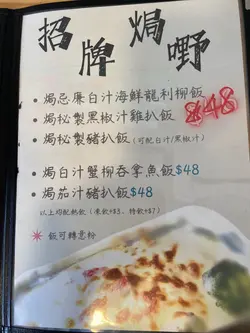 招牌焗嘢
• 焗忌廉白汁海鮮龍利柳飯
• 焗秘製黑椒汁雞扒飯 $48
• 焗秘製豬扒飯(可配白汁/黑椒汁)
• 焗白汁蟹柳吞拿魚飯$48
• 焗茄汁豬扒飯$48
以上均配熱飲(凍飲+$3、特飲+$7)
* 飯可轉意粉